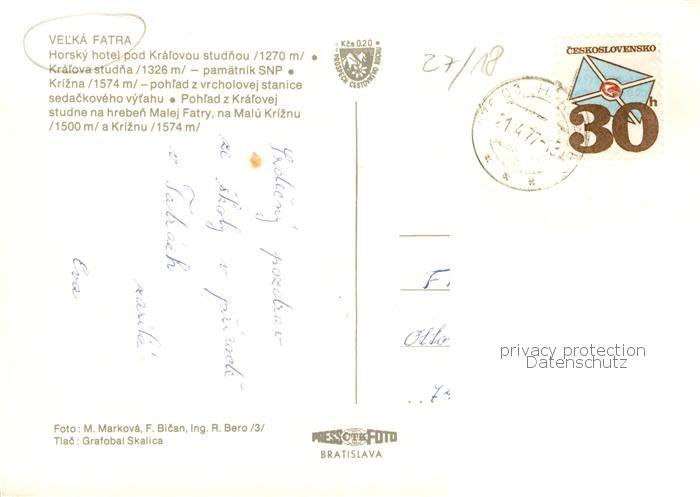 VEĽKÁ FATRA
Horský hotel pod Kráľovou studňou /1270 m/ •
Kráľova studňa /1326 m/ – pamätník SNP •
Krížna /1574 m/ – pohľad z vrcholovej stanice
sedačkového výťahu • Pohľad z Kráľovej
studne na hrebeň Malej Fatry, na Malú Krížnu
/1500 m/ a Krížnu /1574 m/
Kčs 0.20
PROSPECH CESTOVNÉHO RUCHU
27/18
ČESKOSLOVENSKO
30h
21.4.77-13
Srdečný pozdrav
ze školy v přírodě
v Tatrách
zasílá
Eva
F
Otto
privacy protection
Datenschutz
Foto: M. Marková, F. Bičan, Ing. R. Bero /3/
Tlač: Grafobal Skalica
PRESSČTKFOTO
BRATISLAVA